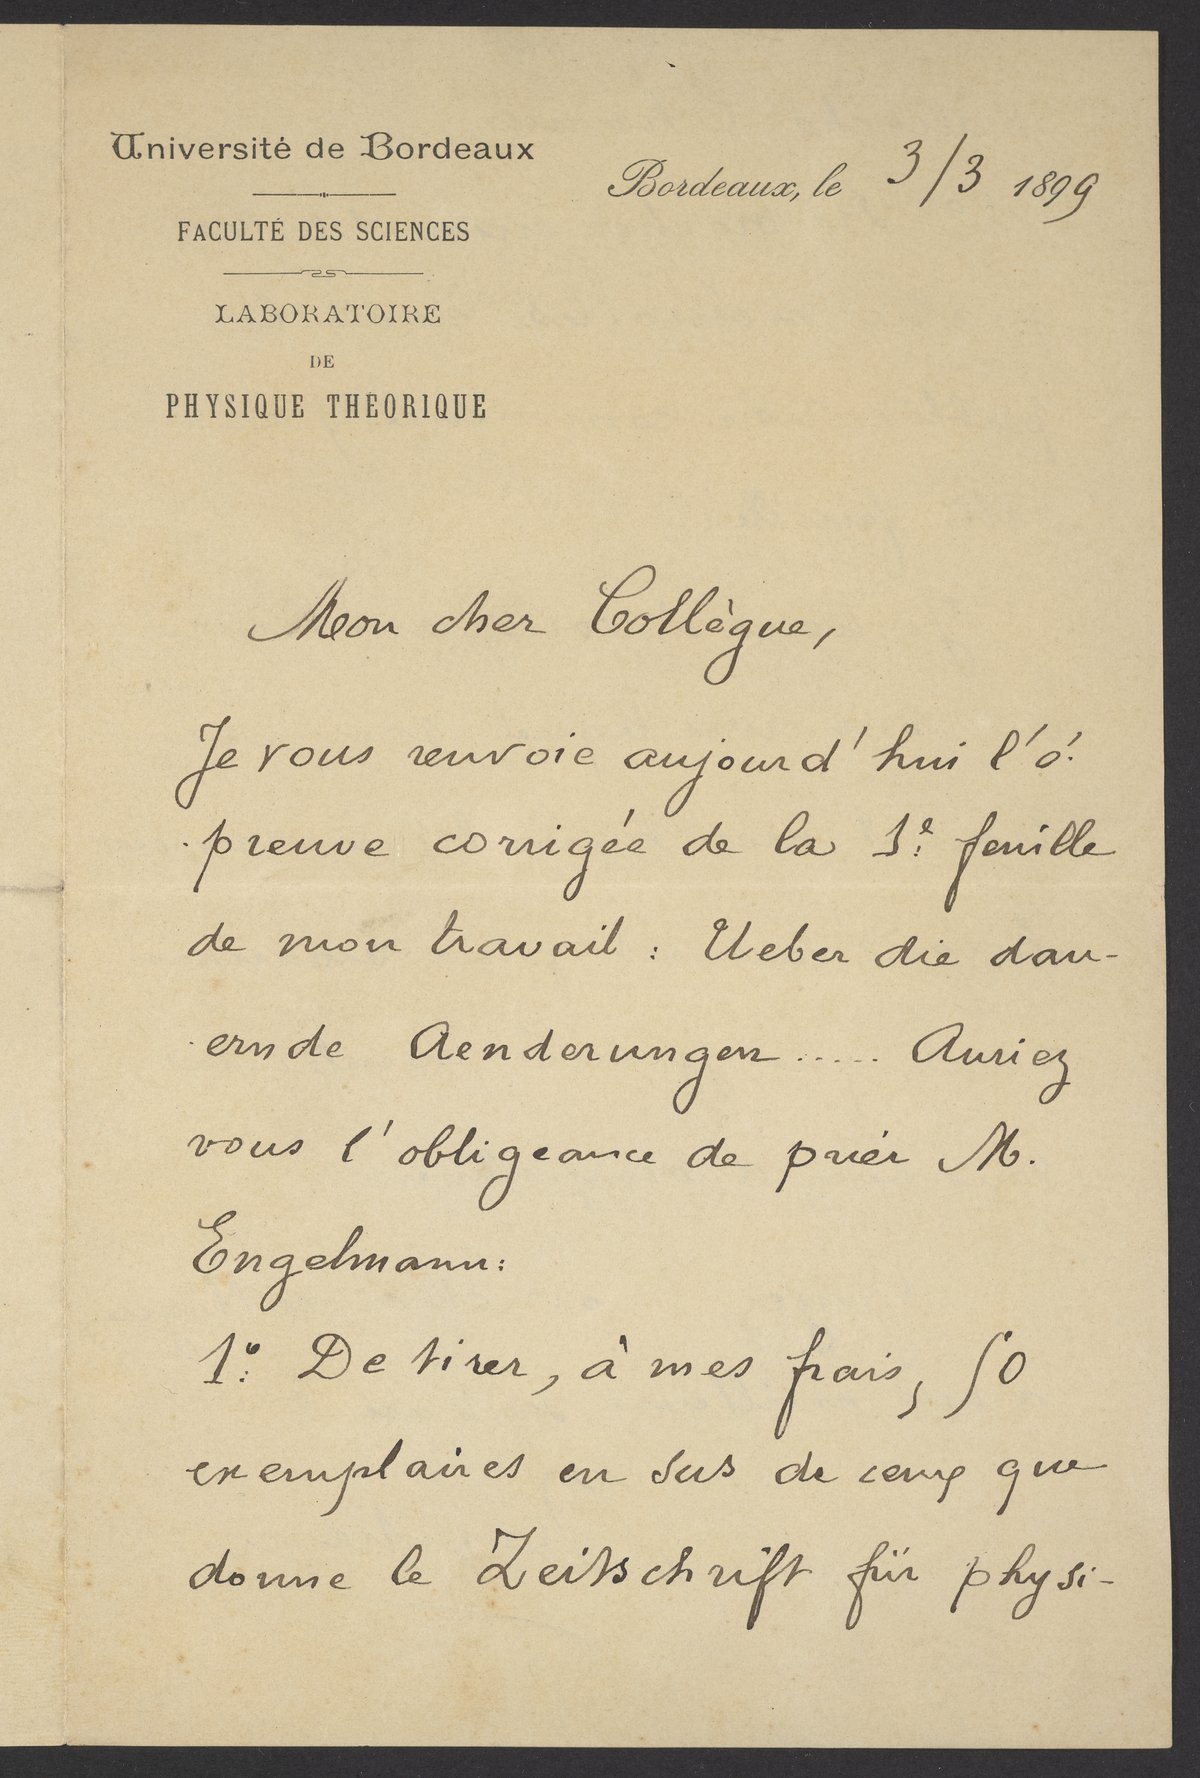 Université de Bordeaux
FACULTÉ DES SCIENCES
LABORATOIRE
DE
PHYSIQUE THÉORIQUE
Bordeaux, le 3/3 1899
Mon cher Collègue,
Je vous renvoie aujourd'hui l'é-
preuve corrigée de la 1e feuille
de mon travail : Ueber die dau-
ernde Aenderungen ..... Auriez
vous l'obligeance de prier M.
Engelmann:
1o De tirer, à mes frais, 50
exemplaires en sus de ceux que
donne le Zeitschrift für physi-